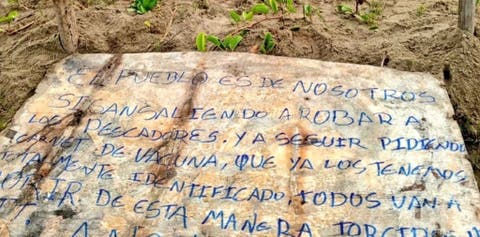 EL PUEBLO ES DE NOSOTROS
SIGANSALIENDO A ROBAR A
LOS PESCADORES. Y A SEGUIR PIDIENDO
CARNET DE VACUNA, QUE YA LOS TENEMOS
TALMENTE IDENTIFICADO, TODOS VAN A
DE ESTA MANERA TORCIDOS